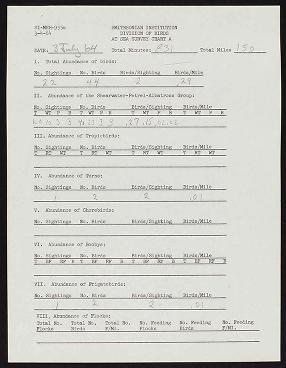 SI-MNH-955e SMITHSONIAN INSTITUTION
3-1-64 DIVISION OF BIRDS
AT SEA SURVEY CHART A
DATE: 3 July 64 Total Minutes: 831 Total Miles 150
I. Total Abundance of birds:
No. Sightings No. Birds Birds/Sighting Birds/Mile
22 44 2
II. Abundance of the Shearwater-Petrel-Albatross Group:
No. Sightings No. Birds Birds/Sighting Birds/Mile
III. Abundance of Tropicbirds:
No. Sightings No. Birds Birds/Sighting Birds/Mile
T RT WT T RT WT T RT WT T RT WT
IV. Abundance of Terns:
No. Sightings No. Birds Birds/Sighting Birds/Mile
1 2 2 .01
V. Abundance of Shorebirds:
No. Sightings No. Birds Birds/Sighting Birds/Mile
VI. Abundance of Boobys:
No. Sightings No. Birds Birds/Sighting Birds/Mile
T BF RF B T BF RF B T BF RF B T BF RF B
VII. Abundance of Frigatebirds:
No. Sightings No. Birds Birds/Sighting Birds/Mile
1 2 2 .01
VIII. Abundance of Flocks:
Total No. Total No. Total No. No. Feeding No. Feeding No. Feeding
Flocks Birds F/Mi. Flocks Birds F/Mi.